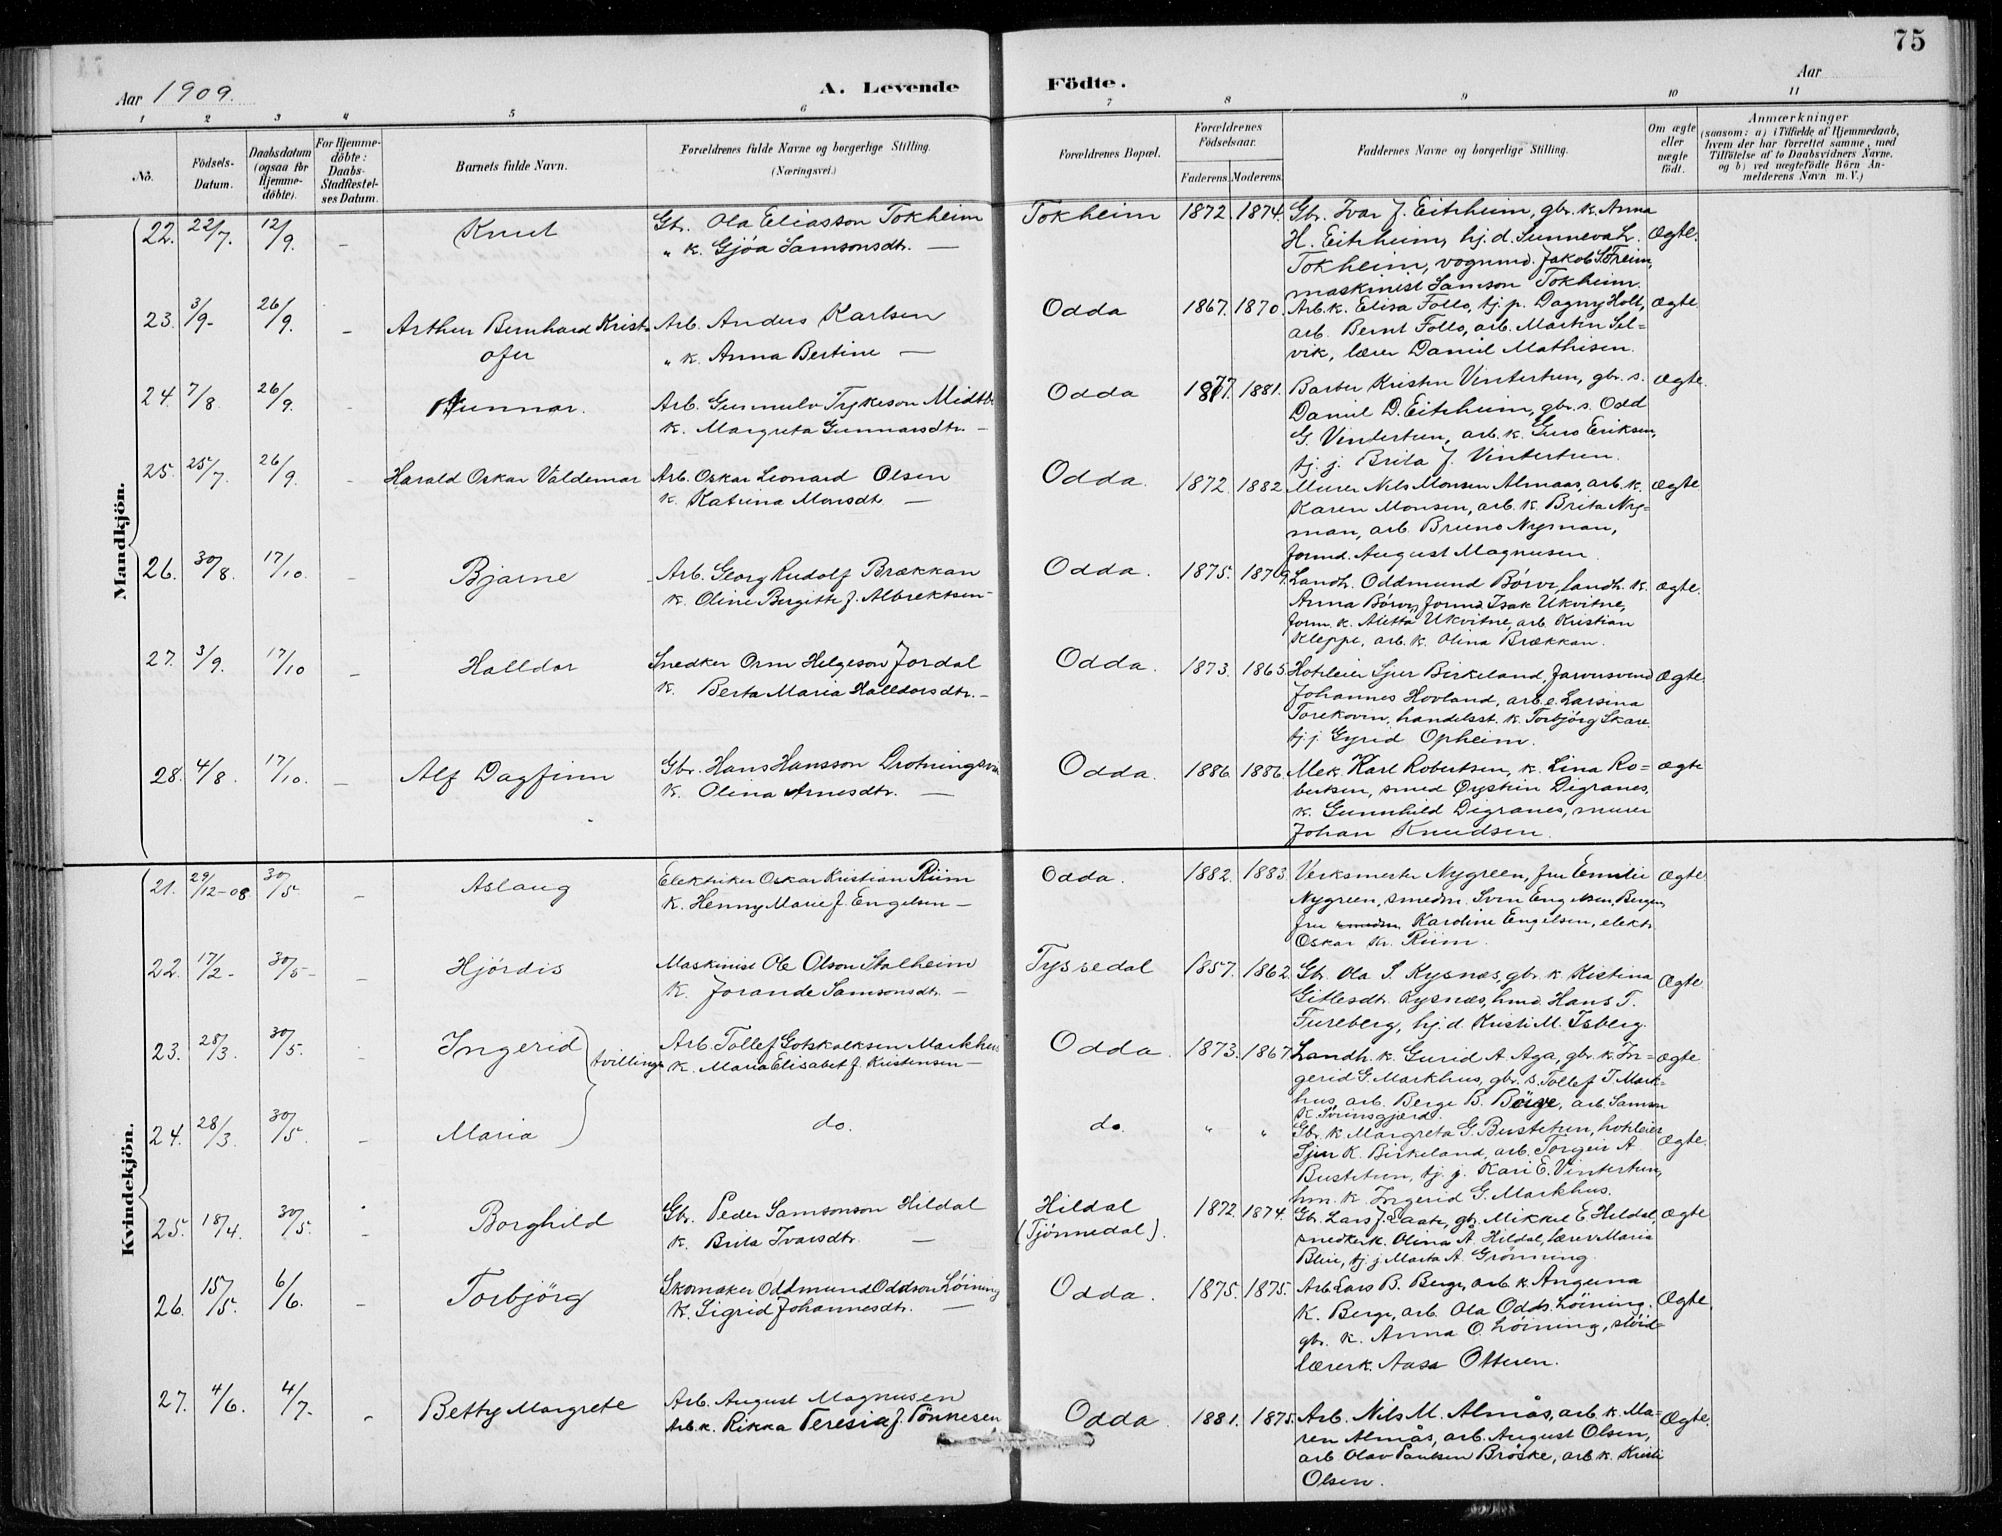 75
Aar 1909.
A. Levende Födte.
Aar
1 2 3 4 5 6 7 8 9 10 11
No.
Födsels-
Datum.
Daabsdatum
(ogsaa for
Hjemme-
döbte).
For Hjemme-
döbte:
Daabs-
Stadfæstel-
ses Datum.
Barnets fulde Navn.
Forældrenes fulde Navne og borgerlige Stilling.
(Næringsvei.)
Forældrenes Bopæl.
Forældrenes
Födselsaar.
Faderens. Moderens.
Faddernes Navne og borgerlige Stilling.
Om ægte
eller
uægte
födt.
Anmærkninger
(saasom: a) i Tilfælde af Hjemmedaab,
hvem der har forrettet samme, med
Tilföielse af to Daabsvidners Navne,
og b) ved uægtefödte Börn An-
melderens Navn m. V.)
Mandkjön.
22. 22/7. 12/9. - Knut
Gbr. Ola Eliasson Tokheim
" k. Gjöa Samsonsdtr. —
Tokheim 1872. 1874. Gbr. Ivar J. Eitrheim, gbr. k. Anna
H. Eitrheim, hj. d. Sunneva L. Ægte.
Tokheim, vognmd. Jakob S. Freim,
maskinist Samson Tokheim.
23. 3/9- 26/9. - Arthur Bernhard Krist-
ofer
Arb. Anders Karlsen
" k. Anna Bertine —
Odda 1867. 1870. Arb. k. Elisa Follo, tj. p. Dagny Holt, ægte
arb. Bernt Follo, arb. Martin Sel=
vik, lærer Daniel Mathisen.
24. 7/8. 26/9. - Gunnar.
Arb. Gunnulv Tykeson Midtb.
k. Margreta Gunnarsdtr. —
Odda 1877. 1881. Barber Kristen Vintertun, gbr. s. ægte.
Daniel D. Eitrheim, gbr. s. Odd
G. Vintertun, arb. k. Guro Eriksen,
tj. j. Brita J. Vintertun.
25. 25/7. 26/9. - Harald Oskar Valdemar
Arb. Oskar Leonard Olsen
k. Katrina Monsdtr. —
Odda. 1872. 1882. Murer Nils Monsen Almaas, arb. k. ægte
Karen Monsen, arb. k. Brita Ny=
man, arb. Bruno Nyman,
formd. August Magnusen.
26. 30/8. 17/10. - Bjarne
Arb. Georg Rudolf Brækkan
k. Oline Bergitte f. Albrektsen —
Odda. 1875. 1879. Landh. Oddmund Börve, landh. k. ægte.
Anna Börve, formd. Isak Ukvitne,
form. k. Aletta Ukvitne, arb. Kristian
Kleppe, arb. k. Olina Brækkan.
27. 3/9. 17/10 - Halldor
Snedker Orm Helgeson Jordal
k. Berta Maria Halldorsdtr. —
Odda. 1873. 1865. Hoteleier Sjur Birkeland, farversvend ægte.
Johannes Hovland, arb. e. Larsina
Torekoven, handelsst. k. Torbjörg Skare
tj. j. Gyrid Opheim.
28. 4/8. 17/10. - Alf Dagfinn
Gbr. Hans Hansson Drotningsvik
k. Olina Arnesdtr. —
Odda. 1886. 1886. Mek. Karl Robertsen, k. Lina Ro= ægte
bertsen, smed Øystein Digranes,
k. Gunnhild Digranes, murer
Johan Knudsen.
Kvindekjön.
21. 29/12-08. 30/5 - Aslaug
Elektriker Oskar Kristian Riim
k. Henny Marie f. Engelsen —
Odda. 1882. 1883. Verksmester Nygreen, fru Emilie ægte
Nygreen, smedm. Sven Engelsen, Bergen,
fru smedm. Karoline Engelsen, elekt.
Oskar Kr. Riim.
22. 17/2- 30/5- - Hjördis
Maskinist Ole Olson Stalheim
k. Jorande Samsonsdtr. —
Tyssedal 1857. 1862. Gbr. Ola S. Kysnæs, gbr. k. Kistina Ægte.
Gitlesdtr. Kysnæs, hmd. Hans T.
Fureberg, hj. d. Kristi M. Isberg.
23. 28/3. 30/5. - Ingerid tvillinger
Arb. Tollef Gotskalksen Markhus
k. Maria Elisabet f. Kristensen —
Odda. 1873. 1867. Landh. k. Gurid A. Aga, gbr. k. In= ægte
gerid G. Markhus, gbr. s. Tollef T. Mark=
hus, arb. Berge B. Berge, arb. Samson
K. Freimsgjerd.
24. 28/3. 30/5. - Maria do. do. " "
Gbr. k. Margreta G. Bustetun, hoteleier Ægte.
Sjur K. Birkeland, arb. Torgeir A
Bustetun, tj. j. Kari E. Vintertun,
hm. k. Ingerid G. Markhus.
25. 18/4. 30/5. - Borghild
Gbr. Peder Samsonson Hildal
k. Brita Ivarsdtr. —
Hildal
(Tjönnedal).
1872. 1874. Gbr. Lars J. Laate, gbr. Mikkel E. Hildal, Ægte
snedker k. Olina Å. Hildal, lærer Maria
Blie, tj. j. Marta A. Grönning.
26. 15/5. 6/6. - Torbjörg
Skomaker Oddmund Oddson Löining
k. Sigrid Johannesdtr. —
Odda. 1875. 1875. Arb. Lars B. Berge, arb. k. Anguna Ægte.
K. Berge, arb. Ola Odds. Löining.
gbr. k. Anna O. Löining, slöid=
lærerk. Aasa Ottesen.
27. 4/6. 4/7. - Betty Margrete
Arb. August Magnusen
Arb. k. Rikka Teresia f. Tönnesen
Odda. 1881. 1875. Arb. Nils M. Almås, arb. k. Ma= Ægte.
ren Almås, arb. August Olsen,
arb. Olav Paulsen Bröske, arb. k. Kristi
Olsen.